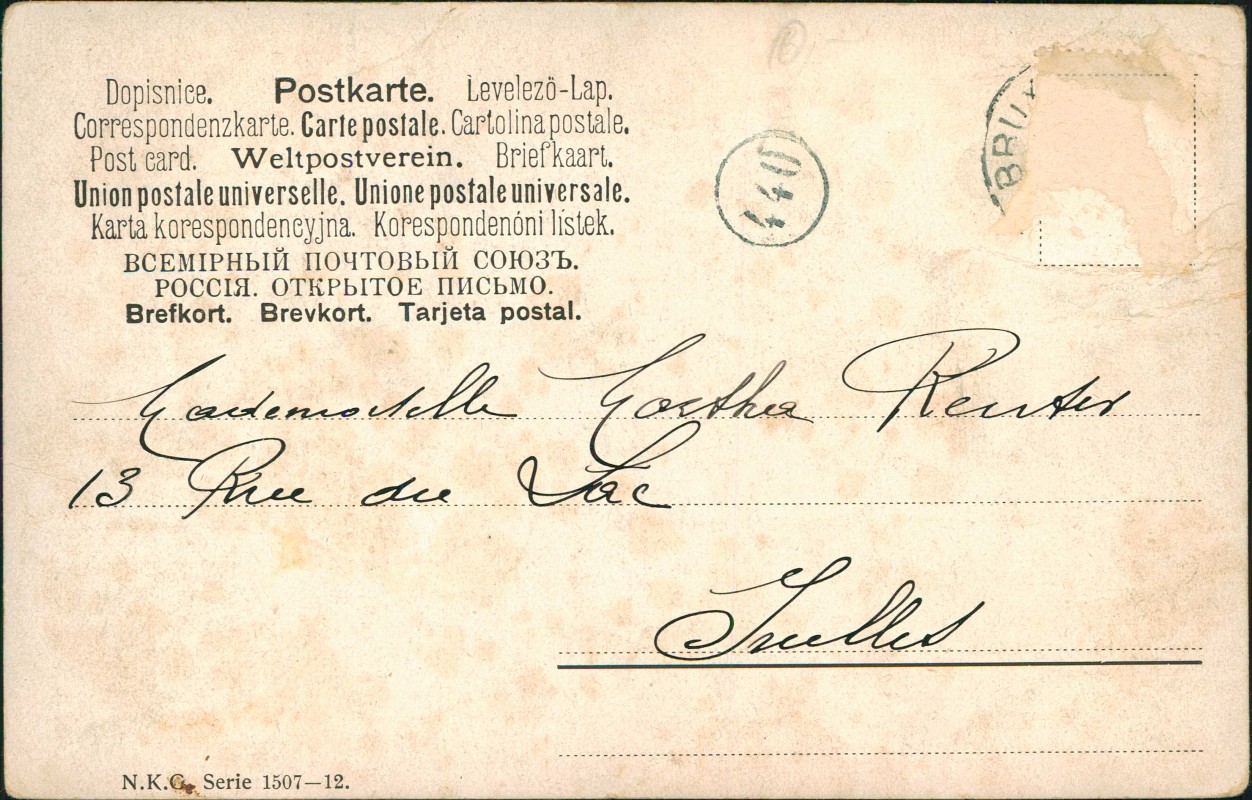 Dopisnice. Postkarte. Levelező-Lap.
Correspondenzkarte. Carte postale. Cartolina postale.
Post card. Weltpostverein. Briefkaart.
Union postale universelle. Unione postale universale.
Karta korespondencyjna. Korespondenóni lístek.
ВСЕМІРНЫЙ ПОЧТОВЫЙ СОЮЗЪ.
РОССІЯ. ОТКРЫТОЕ ПИСЬМО.
Brefkort. Brevkort. Tarjeta postal.
440
BRUX
Mademoiselle Reuter
13 Rue du Lac
Ixelles
N.K.G. Serie 1507—12.